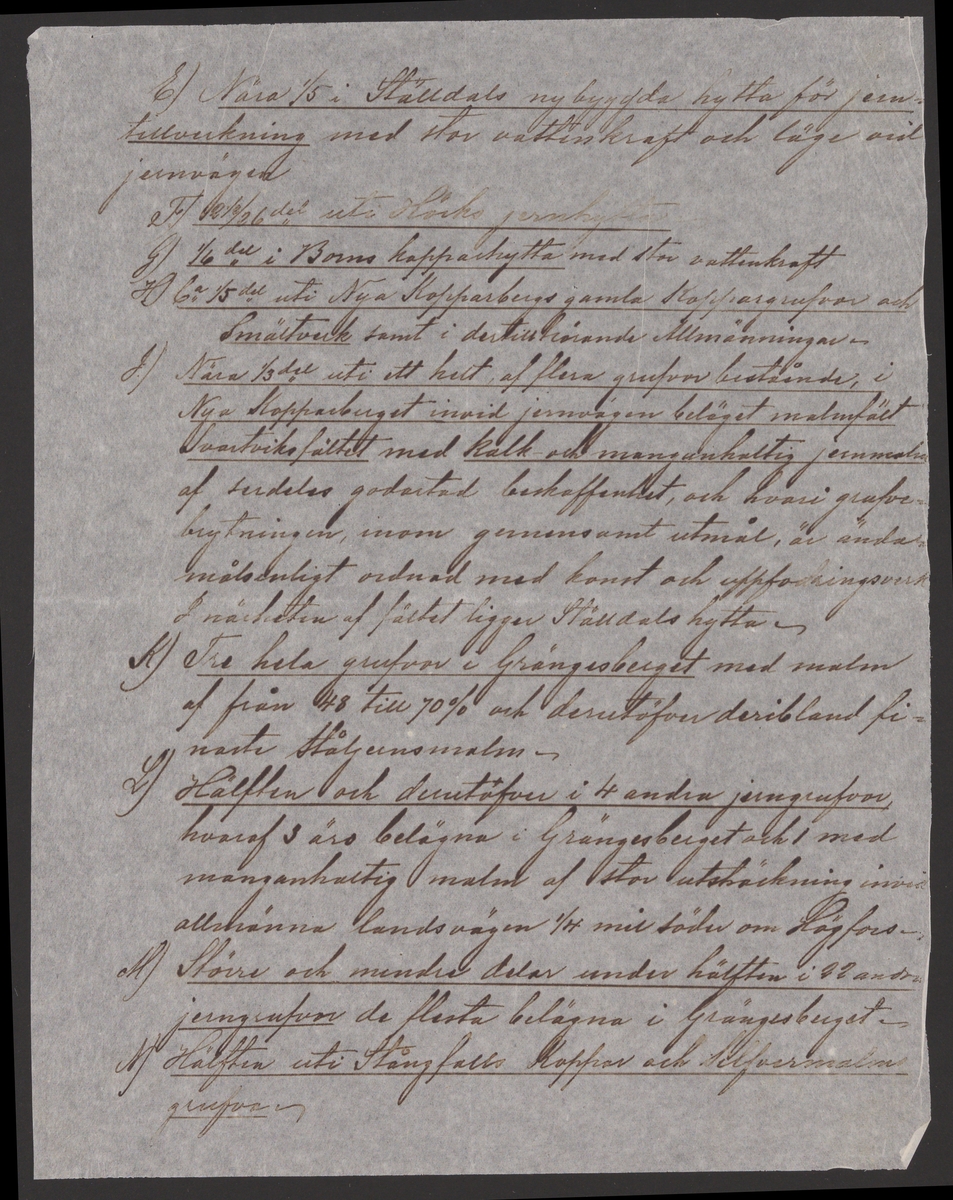 E) Nära 1/5 i Ställdals nybyggda hytta för jern-
tillverkning med stor vattenkraft och läge vid
jernvägen
F) uti Hörks jernhytta
G) 1/6 del i Borns kopparhytta med stor vattenkraft
H) Ca 1/5 del uti Nya Kopparbergs gamla Koppargrufvor och
Smältverk samt i dertill hörande Allmänningar
J.) Nära 1/3 del uti ett helt, af flera grufvor bestående, i
Nya Kopparberget invid jernvägen beläget malmfält
Svartviksfältet med kalk- och manganhaltig jernmalm
af serdeles godartad beskaffenhet, och hvari grufve-
brytningen, inom gemensamt utmål, är ända-
målsenligt ordnad med konst och uppfodringsverk
I närheten af fältet ligger Ställdals hytta
K) Tre hela grufvor i Grängesberget med malm
af från 48 till 70% och derutöfver deribland fi-
naste Ståljernsmalm
L) Hälften och derutöfver i 4 andra jerngrufvor,
hvaraf 3 äro belägna i Grängesberget och 1 med
manganhaltig malm af stor utsträckning invid
allmänna landsvägen 1/4 mil söder om Högfors
M) Större och mindre delar under hälften i 22 andra
jerngrufvor de flesta belägna i Grängesberget
N) Hälften uti Stångfalls Koppar och Silfvermalm
grufva